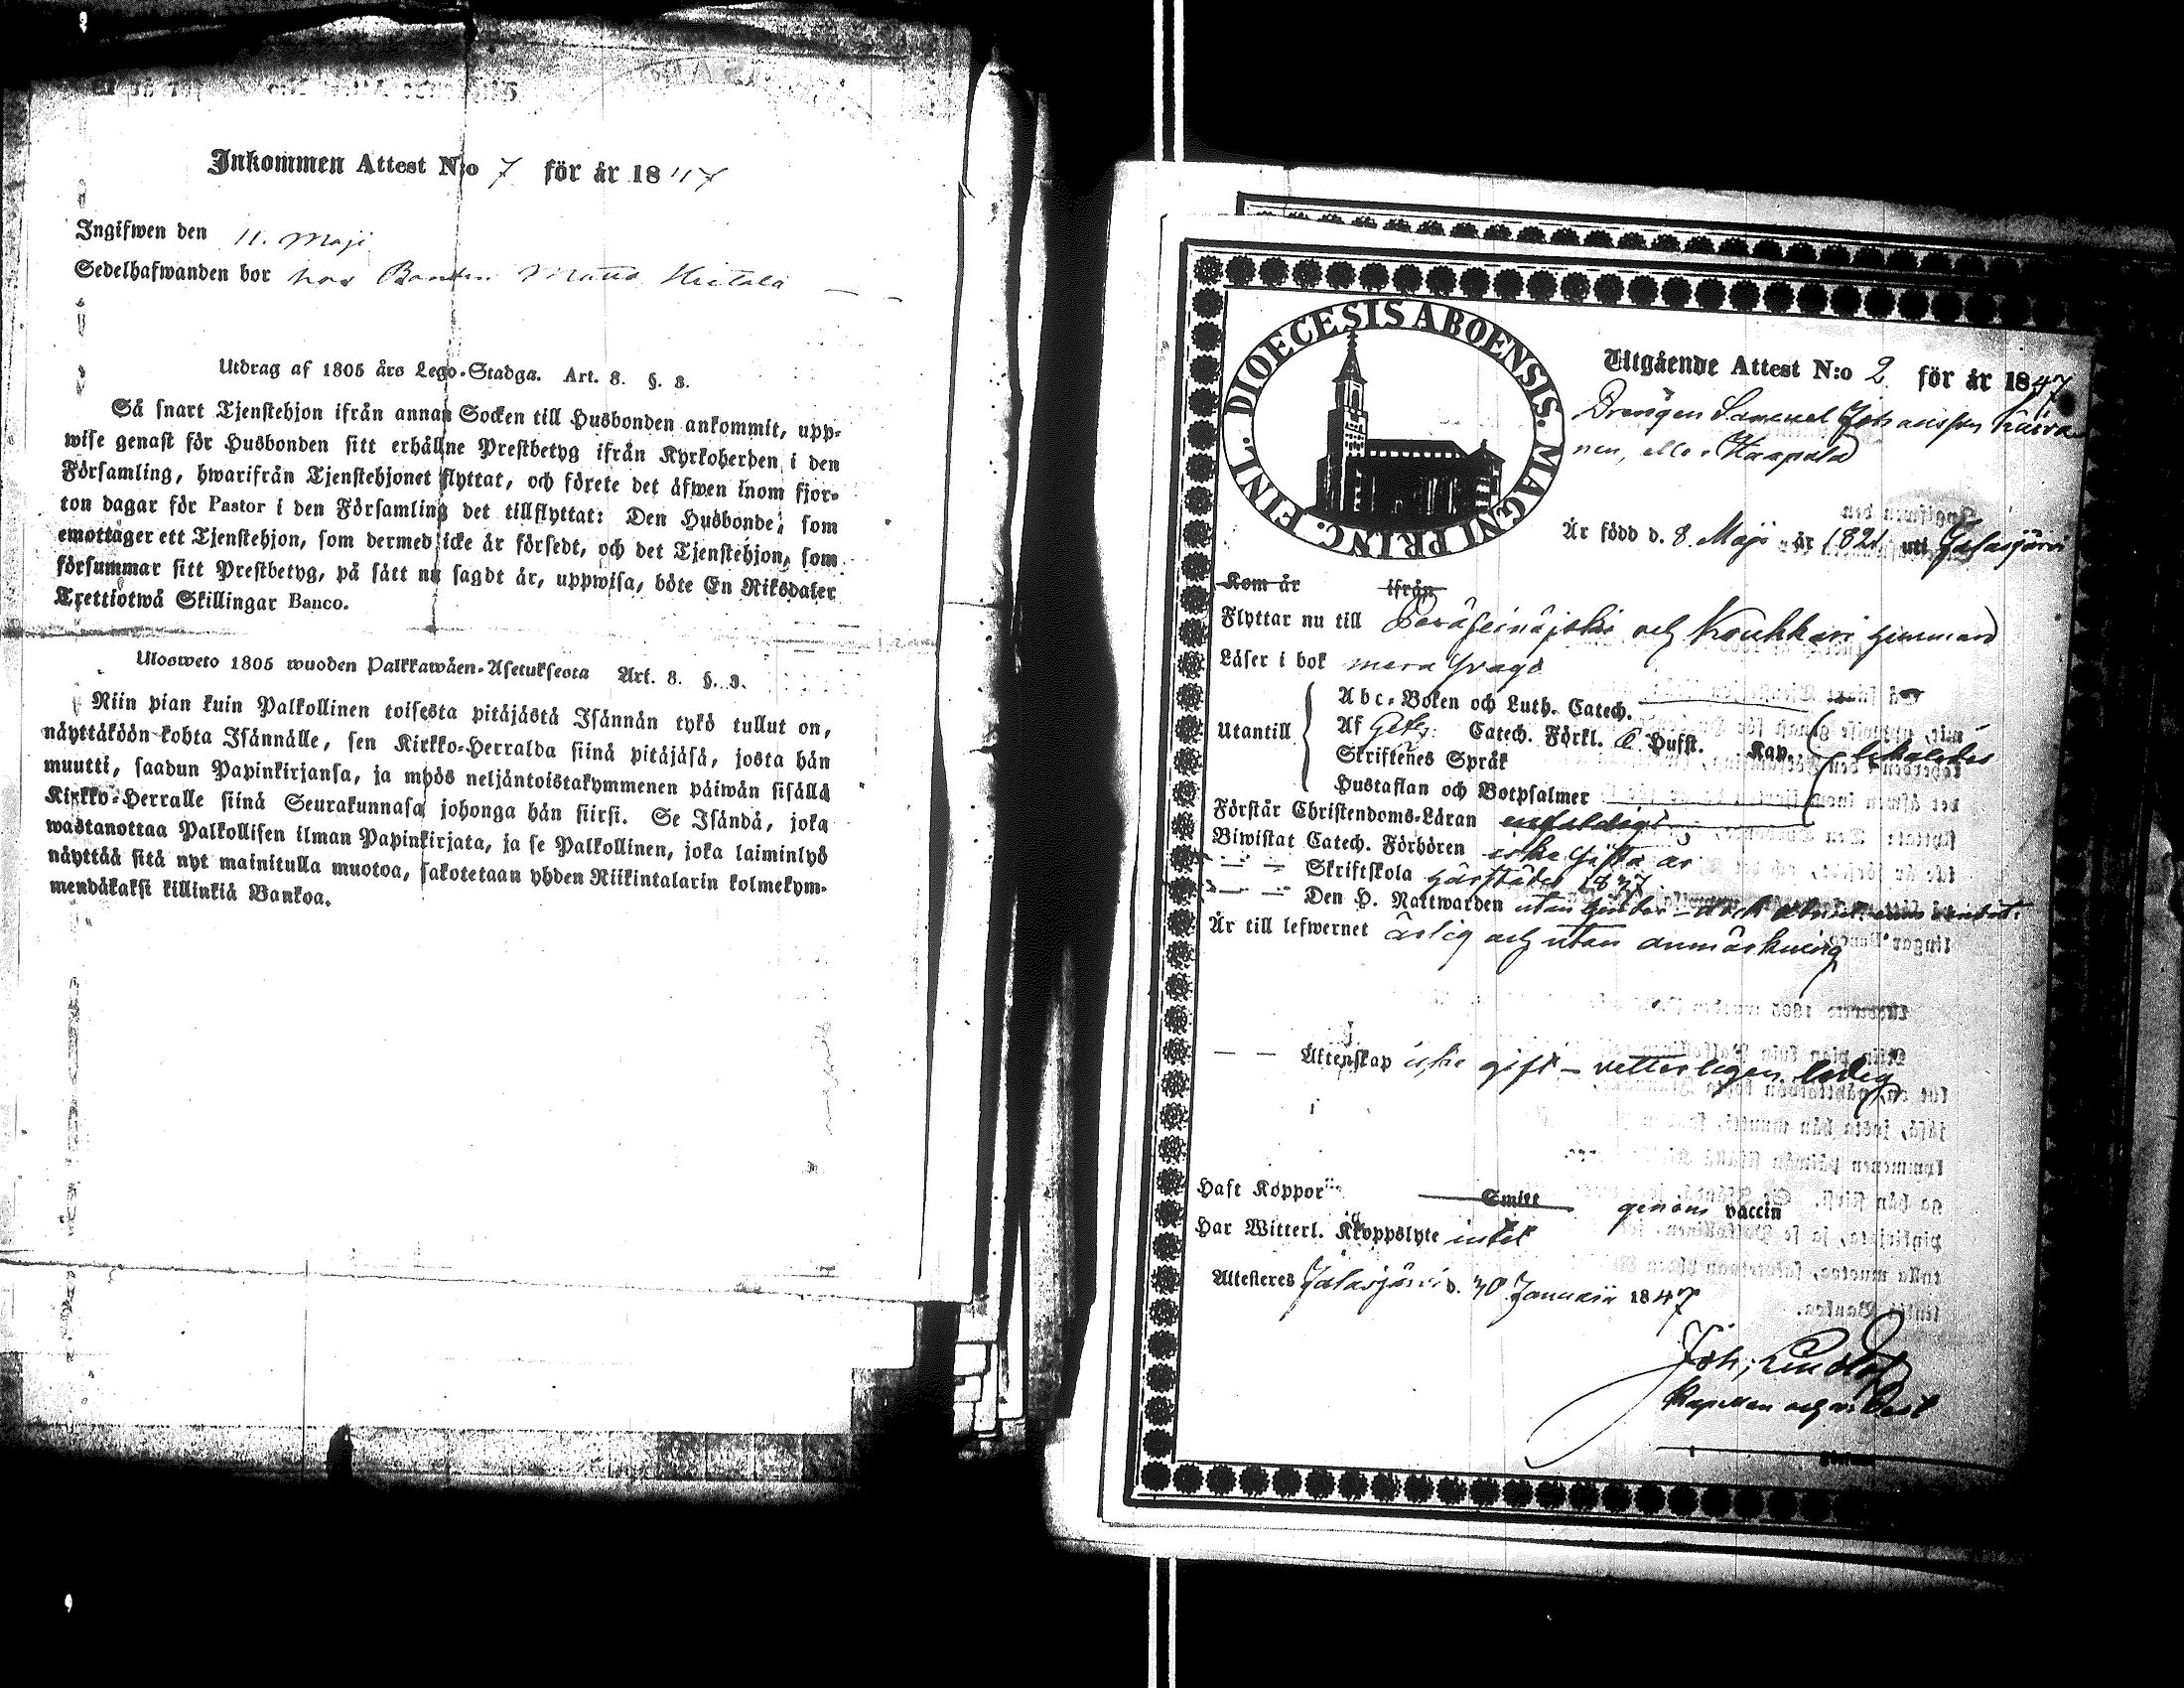 Inkommen Attest N:o 7 för år 1847
Ingifwen den 11. Maji
Sedelhafwanden bor hos Bonden Matts Hietala
Utdrag af 1805 års Lego-Stadga. Art. 8. §. 3.
Så snart Tjenstehjon ifrån annan Socken till Husbonden ankommit, upp-
wise genast för Husbonden sitt erhållne Prestbetyg ifrån Kyrkoherden i den
Församling, hwarifrån Tjenstehjonet flyttat, och förete det äfwen inom fjor-
ton dagar för Pastor i den Församling det tillflyttat: Den Husbonde, som
emottager ett Tjenstehjon, som dermed icke är försedt, och det Tjenstehjon, som
försummar sitt Prestbetyg, på sätt nu sagdt är, uppwisa, böte En Riksdaler
Trettiotwå Skillingar Banco.
Ulosweto 1805 wuoden Palkkawäen-Asetuksesta Art. 8. §. 3.
Niin pian kuin Palkollinen toisesta pitäjästä Isännän tykö tullut on,
näyttäköön kohta Isännälle, sen Kirkko-Herralda siinä pitäjäsä, josta hän
muutti, saadun Papinkirjansa, ja myös neljäntoistakymmenen päiwän sisällä
Kirkko-Herralle siinä Seurakunnasa johonga hän siirsi. Se Isändä, joka
wastanottaa Palkollisen ilman Papinkirjata, ja se Palkollinen, joka laiminlyö
näyttää sitä nyt mainitulla muotoa, sakotetaan yhden Riikintalarin kolmekym-
mendäkaksi killinkiä Bankoa.
DIOECESIS ABOENSIS. MAGNI PRINC. FINL.
Utgående Attest N:o 2 för år 1847
Drengen Samuel Johansson
nen, eller Haapala
Är född d. 8 Maji år 1821 uti Jalasjärvi
Kom år ifrån
Flyttar nu till Peräseinäjoki och Koukkari hemman
Läser i bok mera svagt
Utantill
Abc-Boken och Luth. Catech.
Af Catech. Förkl. Hufst. Kap.
Skriftenes Språk
Hustaflan och Botpsalmer
Förstår Christendoms-Läran enfaldigt
Biwistat Catech. Förhören sista år
— — Skriftskola 1837
— — Den H. Nattwarden utan hinder
Är till lefwernet ärlig och utan anmärkning
— — Äktenskap icke gift – vetterligen ledig
Haft Koppor Smitt genom vaccin
Har Witterl. Kroppslyte intet
Attesteres Jalasjärvi d. 30 Januarii 1847
Joh: Lindlöf